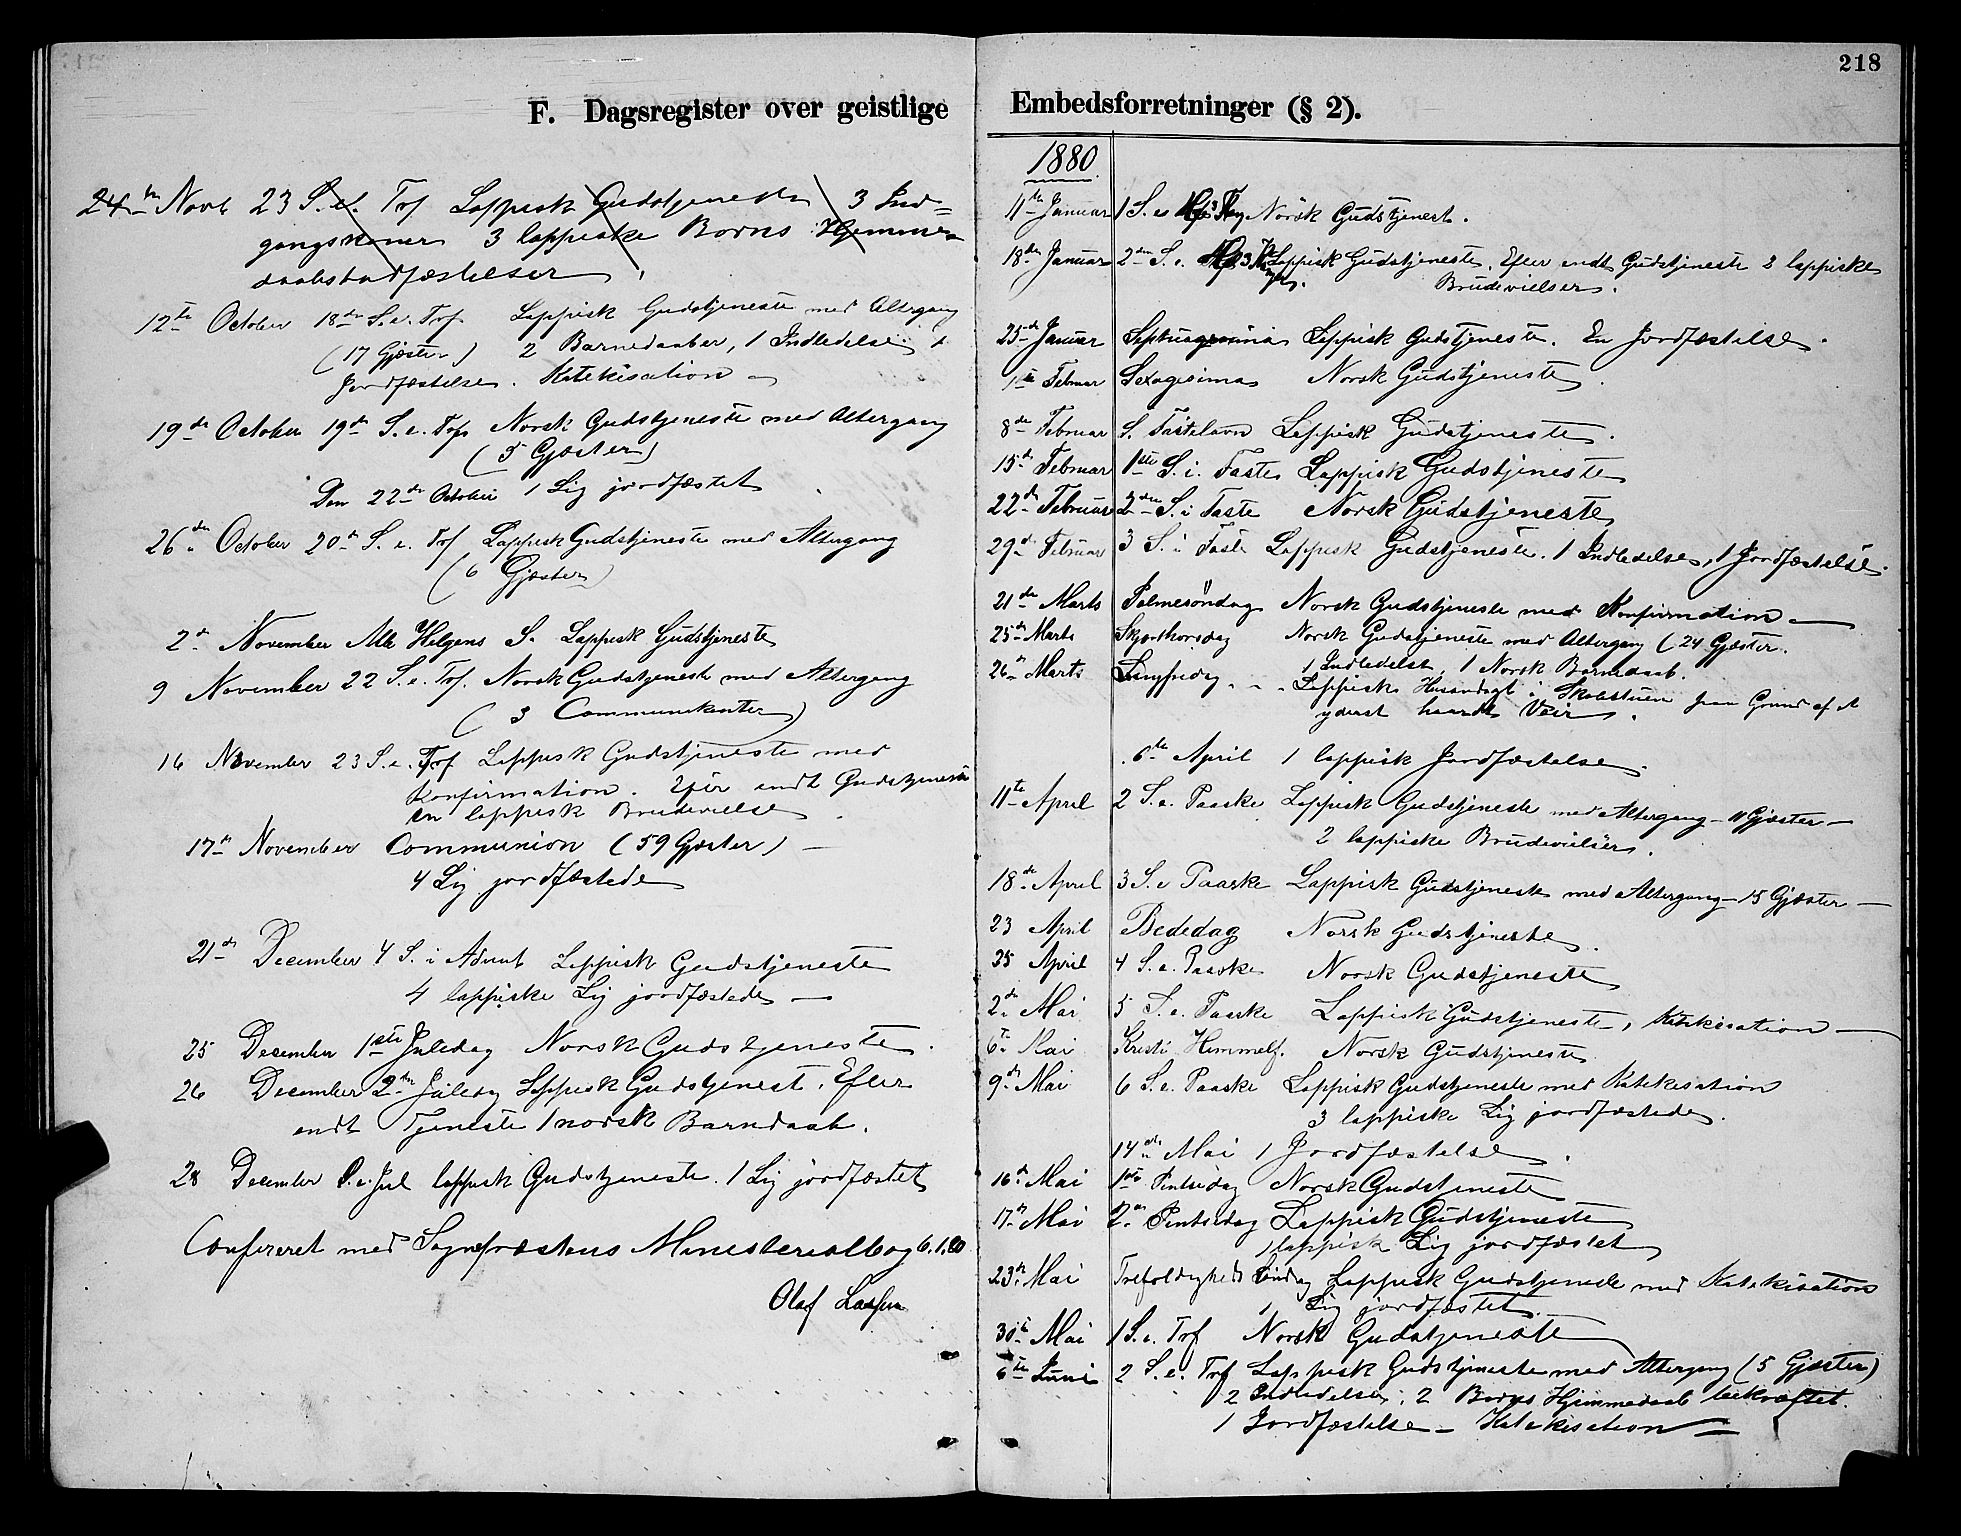 218
F. Dagsregister over geistlige Embedsforretninger (§ 2).
24de Novb 23 S. e. Trf Lappisk Gudstjeneste 3 Ind-
gangskoner 3 lappiske Borns Hjemme-
daabstadfæstelser
12te October 18de S. e. Trf. Lappisk Gudstjeneste med Altergang
(17 Gjester) 2 Barnedaaber, 1 Indledelse, 1
Jordfæstelse. Katekisation
19de October 19de S. e. Trf. Norsk Gudstjeneste med Altergang
(5 Gjæster)
Den 22de October 1 Lig jordfæstet
26de October 20de S. e. Trf Lappisk Gudstjeneste med Altergang
(6 Gjæster)
2d November Alle Helgens S. Lappisk Gudstjeneste
9 November 22 S. e. Trf. Norsk Gudstjeneste med Altergang
(3 Communikanter)
16 November 23 S. e. Trf Lappisk Gudstjeneste med
Konfirmation. Efter endt Gudstjeneste
en lappisk Brudevielse
17de November Communion (59 Gjæster) —
4 Lig jordfæstede
21de December 4 S. i Advent Lappisk Gudstjeneste
4 lappiske Lig jordfæstede —
25 December 1ste Juledag Norsk Gudstjeneste.
26 December 2den Juledag Lappisk Gudstjenest. Efter
endt Tjeneste 1 norsk Barndaab.
28 December S. e. Jul lappisk Gudstjeneste. 1 Lig jordfæstet
Confereret med Sognepræstens Ministerialbog 6.1.80
Olaf
1880.
11te Januar 1 S. e. H. 3 K. Norsk Gudstjenest.
18de Januar 2den S. e. H. 3 K. Lappisk Gudstjeneste. Efter endt Gudstjeneste 2 lappiske
Brudevielser.
25de Januar Septuagesima Lappisk Gudstjeneste. En Jordfæstelse.
1ste Februar Sexagesima Norsk Gudstjeneste.
8de Februar S. Fastelavn Lappisk Gudstjeneste.
15de Februar 1ste S. i. Faste Lappisk Gudstjeneste
22de Februar 2den S. i Faste Norsk Gudstjeneste
29de Februar 3 S. i Faste Lappisk Gudstjeneste. 1 Indledelse, 1 Jordfæstelse.
21de Marts Palmesöndag Norsk Gudstjeneste med Konfirmation —
25de Marts Skjærthorsdag Norsk Gudstjeneste med Altergang (24 Gjæster.
1 Indledelse, 1 Norsk Barnedaab.
26de Marts Langfredag - - Lappisk Husandagt i Skolestuen paa Grund af et
yderst haardt Veir.
6te April 1 lappisk Jordfæstelse.
11te April 2 S. e. Paaske Lappisk Gudstjeneste med Altergang – 11 Gjæster –
2 lappiske Brudevielser.
18de April 3 S. e Paaske Lappisk Gudstjeneste med Altergang – 15 Gjæster –
23 April Bededag Norsk Gudstjeneste.
25 April 4 S. e. Paaske Norsk Gudstjeneste
2den Mai 5 S. e. Paaske Lappisk Gudstjeneste, Katekisation —
6te Mai Kristi Himmelf. Norsk Gudstjeneste
9de Mai 6 S. e. Paaske Lappisk Gudstjeneste med Katekisation
3 lappiske Lig jordfæstede.
14de Mai 1 Jordfæstelse.
16de Mai 1ste Pintsedag Norsk Gudstjeneste
17de Mai 2den Pintsedag Lappisk Gudstjeneste
1 lappisk Lig jordfæstet
23de Mai Trefoldigheds Søndag Lappisk Gudstjeneste med Katekisation
1 Lig jordfæstet.
30te Mai 1 S. e. Trf Norsk Gudstjeneste
6te Juni 2 S. e. Trf Lappisk Gudstjeneste med Altergang (5 Gjæster)
2 Indledelser, 2 Borns Hjemmedaab bekræftet.
1 Jordfæstelse – Katekisation —